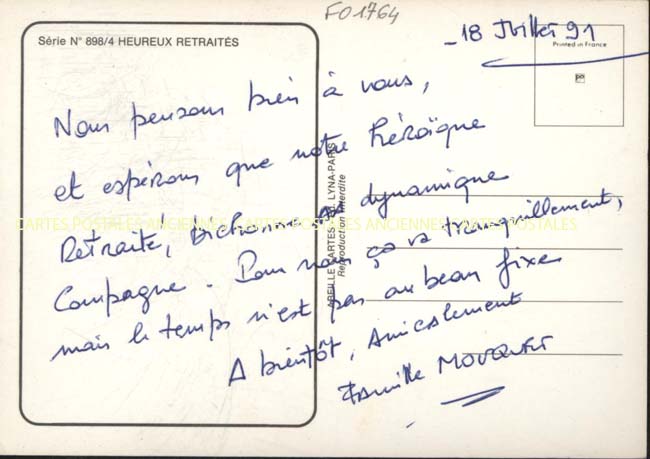 FO1764
Série N° 898/4 HEUREUX RETRAITÉS
18 Juillet 91
Printed in France
Nous pensons bien à vous,
et espérons que notre héroïque
Retraité, bichonne sa dynamique
Compagne. Pour nous ça va tranquillement,
mais le temps n'est pas au beau fixe
A bientôt, Amicalement
Famille MOUQUET
ABEILLE CARTES - Ed. LYNA-PARIS
Reproduction interdite
CARTES POSTALES ANCIENNES CARTES POSTALES ANCIENNES CARTES POSTALES